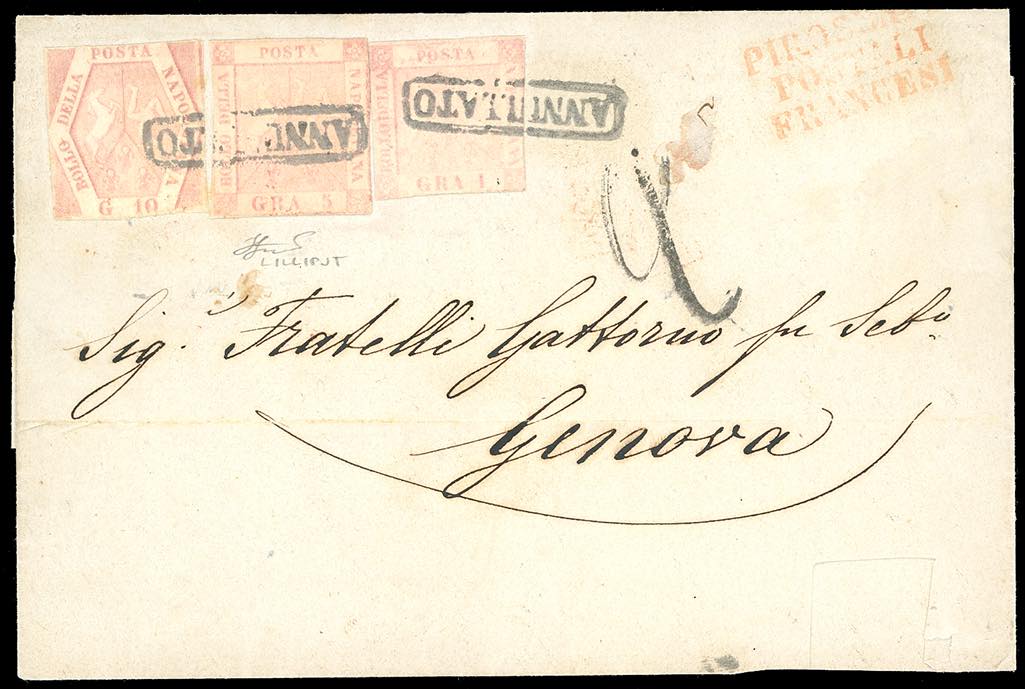 BOLLO DELLA POSTA NAPOLETANA
G 10
BOLLO DELLA POSTA NAPOLETANA
GRA 5
BOLLO DELLA POSTA NAPOLETANA
GRA 1
ANNULLATO
ANNULLATO
PIROSCAFI
POSTALI
FRANCESI
2
LILLIPUT
Sig.i Fratelli Gattorno fu Seb.o
Genova